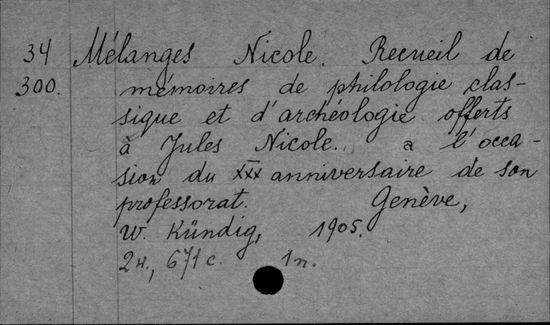 34 Mélanges Nicole. Recueil de
300. mémoires de philologie clas-
sique et d'archéologie offerts
à Jules Nicole. a l'occa-
sion du XXX anniversaire de son
professorat. Genève,
W. Kündig, 1905.
2н., 671 с. 1п.